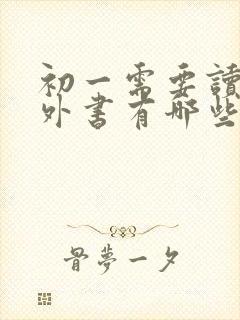 初一需要讀
外書有哪些
骨夢一夕